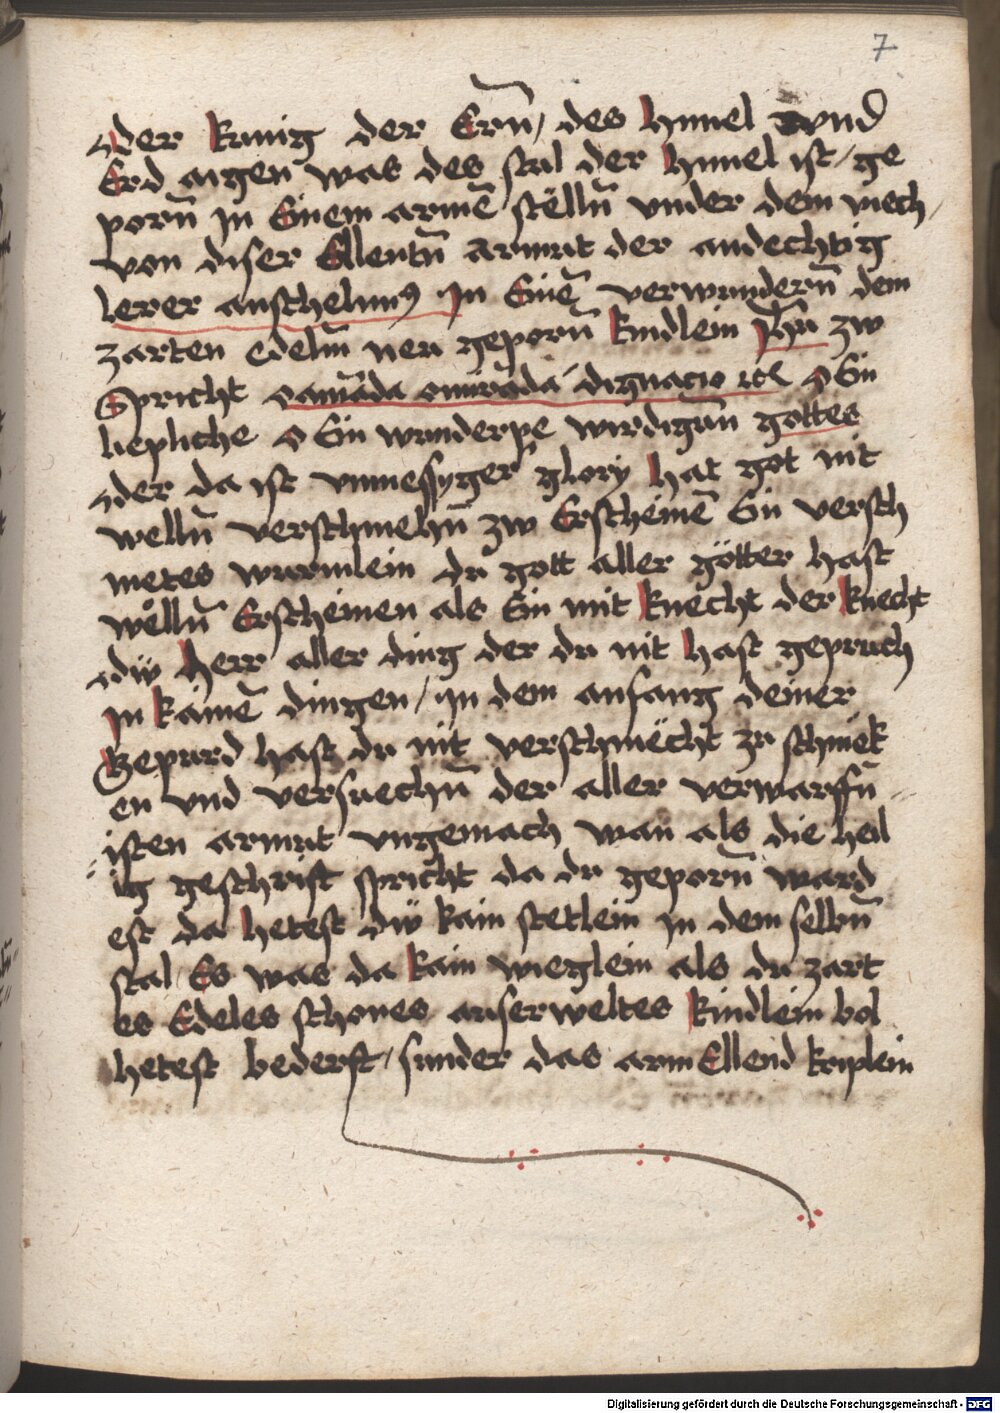 7
der kunig der Ern̄ / des himel vnd
Erd aigen was des stal der himel ist / ge
porn̄ jn Einem armē stëlln̄ vnder dem viech /
von diser Ellentn̄ armut der andechtig
lerer anshelmꝰ jn Einē verwundern̄ dem
zarten edelm̄ neu geporn̄ kindlein jhū zw
Spricht o amāda o mirāda dignacio rc̄ O Ein
liepliche O Ein wunderpe wirdigūn gottes
der da ist vnmessyger glory hat got nit
welln̄ verschmehn̄ zw Erscheinē Ein versch
metes wurmlein du gott aller götter hast
wölln̄ Erscheinen als Ein mit knecht der knecht
dw̋ herr aller ding der du nit hast gepruch
jn kainē dingen / jn dem anfang deiner
gepurd hast du nit verschmëcht zu schmek
en vnd versuechn̄ der aller verwarffn̄
isten armut vngemach wan̄ als die heil
ig geschrift spricht da du geporn̄ ward
est da hetest dw̋ kain stetlein jn dem selbn̄
stal / Es was da kain wieglein als du zart
es Edeles schones auserweltes kindlein bol
hetest bederft / sunder das arm Ellend kriplein
Digitalisierung gefördert durch die Deutsche Forschungsgemeinschaft - DFG